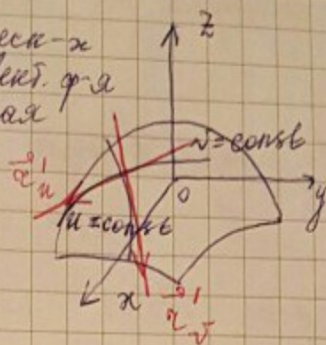 z
еск-х
вект. ф-я
ая
v=const
r⃗'u
0
y
u=const
x
r⃗'v